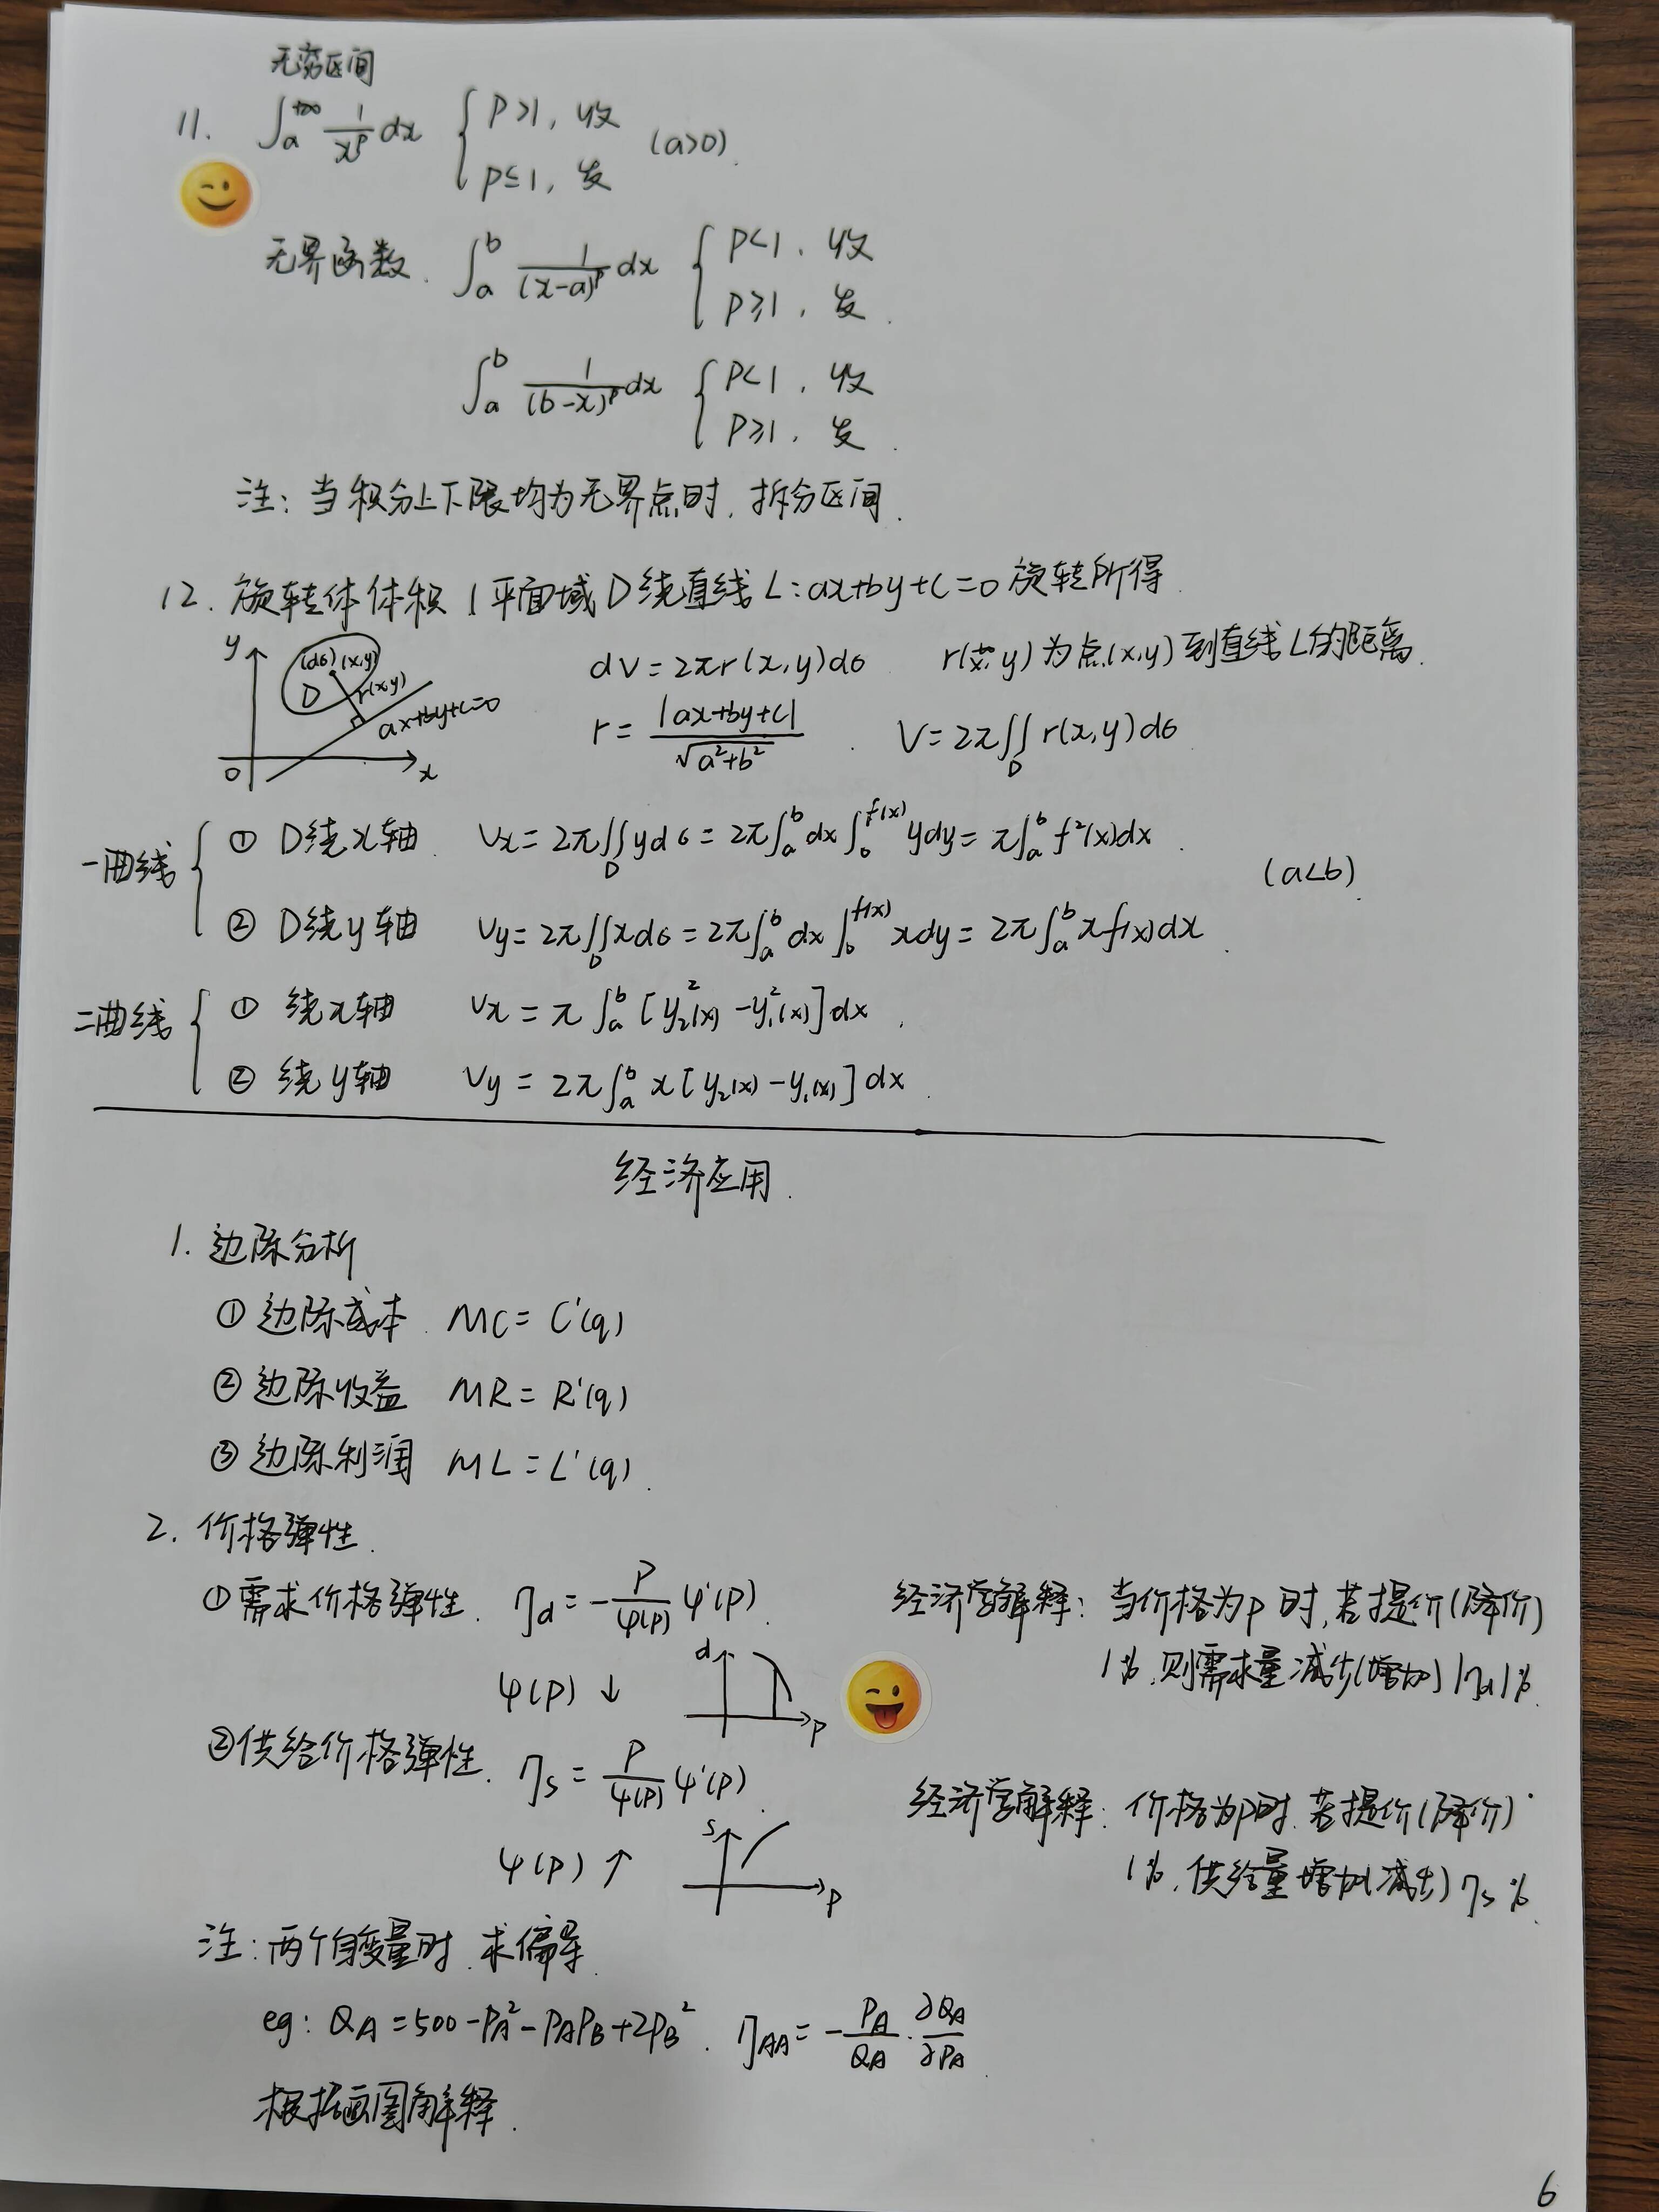 无穷区间
11. ∫_a^{+∞} 1/x^p dx { p>1, 收 (a>0)
p≤1, 发
无界函数. ∫_a^b 1/(x-a)^p dx { p<1, 收
p≥1, 发.
∫_a^b 1/(b-x)^p dx { p<1, 收
p≥1, 发.
注: 当积分上下限均为无界点时, 拆分区间.
12. 旋转体体积 | 平面域 D 绕直线 L: ax+by+c=0 旋转所得.
y (dσ) (x,y) D r(x,y) ax+by+c=0 0 x
dV=2πr(x,y)dσ r(x,y)为点(x,y)到直线L的距离.
r=|ax+by+c|/√(a²+b²). V=2π∬_D r(x,y)dσ
一曲线 { ① D绕x轴. Vx=2π∬_D ydσ=2π∫_a^b dx∫_0^{f(x)} ydy=π∫_a^b f²(x)dx.
(a<b).
② D绕y轴 Vy=2π∬_D xdσ=2π∫_a^b dx∫_0^{f(x)} xdy=2π∫_a^b xf(x)dx.
二曲线 { ① 绕x轴 Vx=π∫_a^b [y₂²(x)-y₁²(x)]dx.
② 绕y轴 Vy=2π∫_a^b x[y₂(x)-y₁(x)]dx.
经济应用.
1. 边际分析
① 边际成本. MC=C'(q)
② 边际收益 MR=R'(q)
③ 边际利润 ML=L'(q).
2. 价格弹性.
① 需求价格弹性. ηd=-P/φ(P) φ'(P).
经济学解释: 当价格为p时, 若提价(降价)
1%, 则需求量减少(增加)|ηd|%.
φ(P)↓ d P
② 供给价格弹性. ηs=P/ψ(P) ψ'(P).
经济学解释: 价格为p时. 若提价(降价)
1%, 供给量增加(减少)ηs%.
ψ(P)↑ s P
注: 两个自变量时. 求偏导.
eg: QA=500-PA²-PAPB+2PB². ηAA=-PA/QA·∂QA/∂PA.
根据画图解释.
6